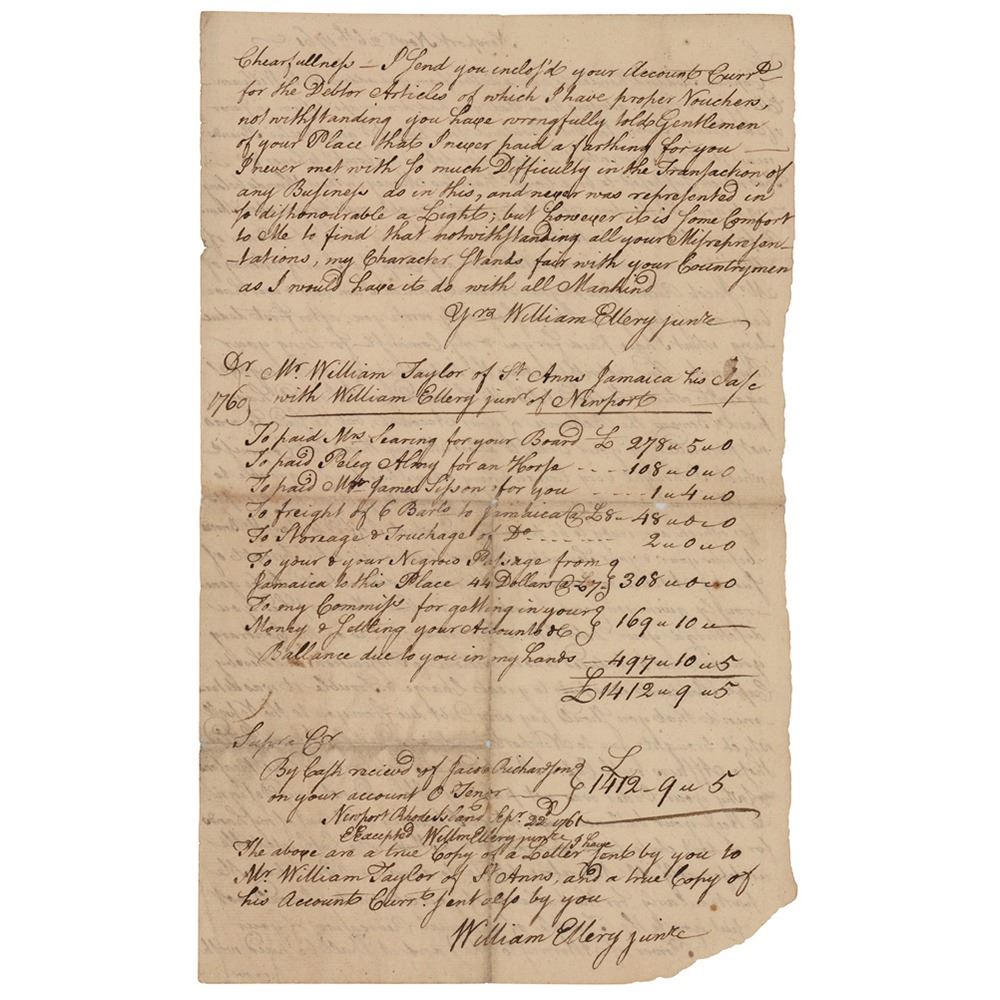 Chearfullness – I Send you inclos'd your Account Curr.t
for the Debtor Articles of which I have proper Vouchers,
notwithstanding you have wrongfully told Gentlemen
of your Place that I never paid a farthing for you —
I never met with so much Difficulty in the Transaction of
any Business as in this, and never was represented in
so dishonourable a Light; but however it is some Comfort
to Me to find that notwithstanding all your Misrepresen-
-tations, my Character Stands fair with your Countrymen
as I would have it do with all Mankind
Yrs William Ellery junr
Dr Mr William Taylor of St Anns Jamaica his a/c
1760 with William Ellery junr of Newport
To paid Mrs Searing for your Board £ 278 " 5 " 0
To paid Peleg Almy for an Horse - - - 108 " 0 " 0
To paid James Sisson for you - - - - 1 " 4 " 0
To freight of 6 Barls to Jamaica @ £8 - 48 " 0 " 0
To Storeage & Truckage of Do - - - - - - 2 " 0 " 0
To your & your Negroes Passage from }
Jamaica to this Place 44 Dollars @ £7 } 308 " 0 " 0
To my Commiss for getting in your }
Money & Settling your Accounts &c } 169 " 10 " —
Ballance due to you in my hands — 497 " 10 " 5
£1412 " 9 " 5
Supra Cr
By Cash recievd of Jacob Richardson } £
on your account O Tenor — } 1412 - 9 " 5
Newport Rhode Island Sepr 22d 1761
Excepted Willm Ellery junr
The above are a true Copy of a Letter I have sent by you to
Mr William Taylor of St Anns, and a true Copy of
his Account Currt. sent also by you
William Ellery junr